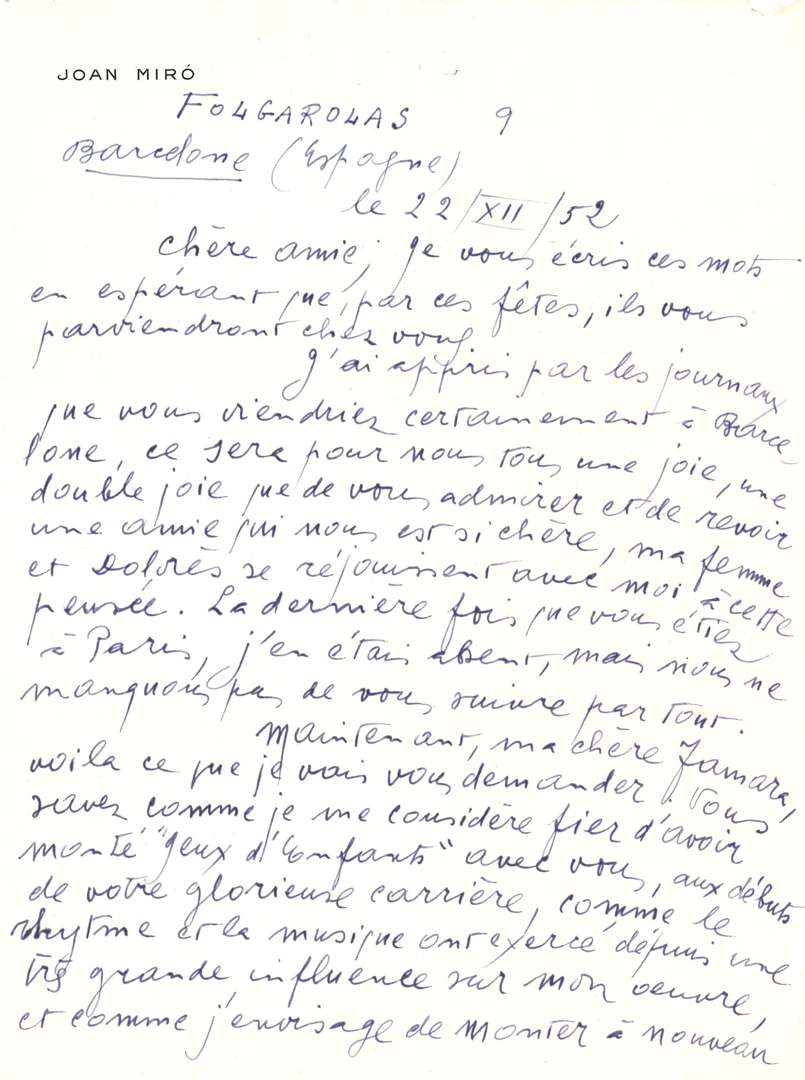 JOAN MIRÓ
FOLGAROLAS 9
Barcelone (Espagne)
le 22/XII/52
Chère amie, je vous écris ces mots
en espérant que, par ces fêtes, ils vous
parviendront chez vous.
J'ai appris par les journaux
que vous viendriez certainement à Barce-
lone, ce sera pour nous tous une joie, une
double joie que de vous admirer et de revoir
une amie qui nous est si chère, ma femme
et Dolorès se réjouissent avec moi à cette
pensée. La dernière fois que vous étiez
à Paris, j'en étais absent, mais nous ne
manquons pas de vous suivre par tout.
Maintenant, ma chère Tamara,
voila ce que je vais vous demander. Vous
savez comme je me considère fier d'avoir
monté "Jeux d'Enfants" avec vous, aux débuts
de votre glorieuse carrière, comme le
rhytme et la musique ont exercé dépuis une
très grande influence sur mon oeuvre,
et comme j'envisage de monter à nouveau